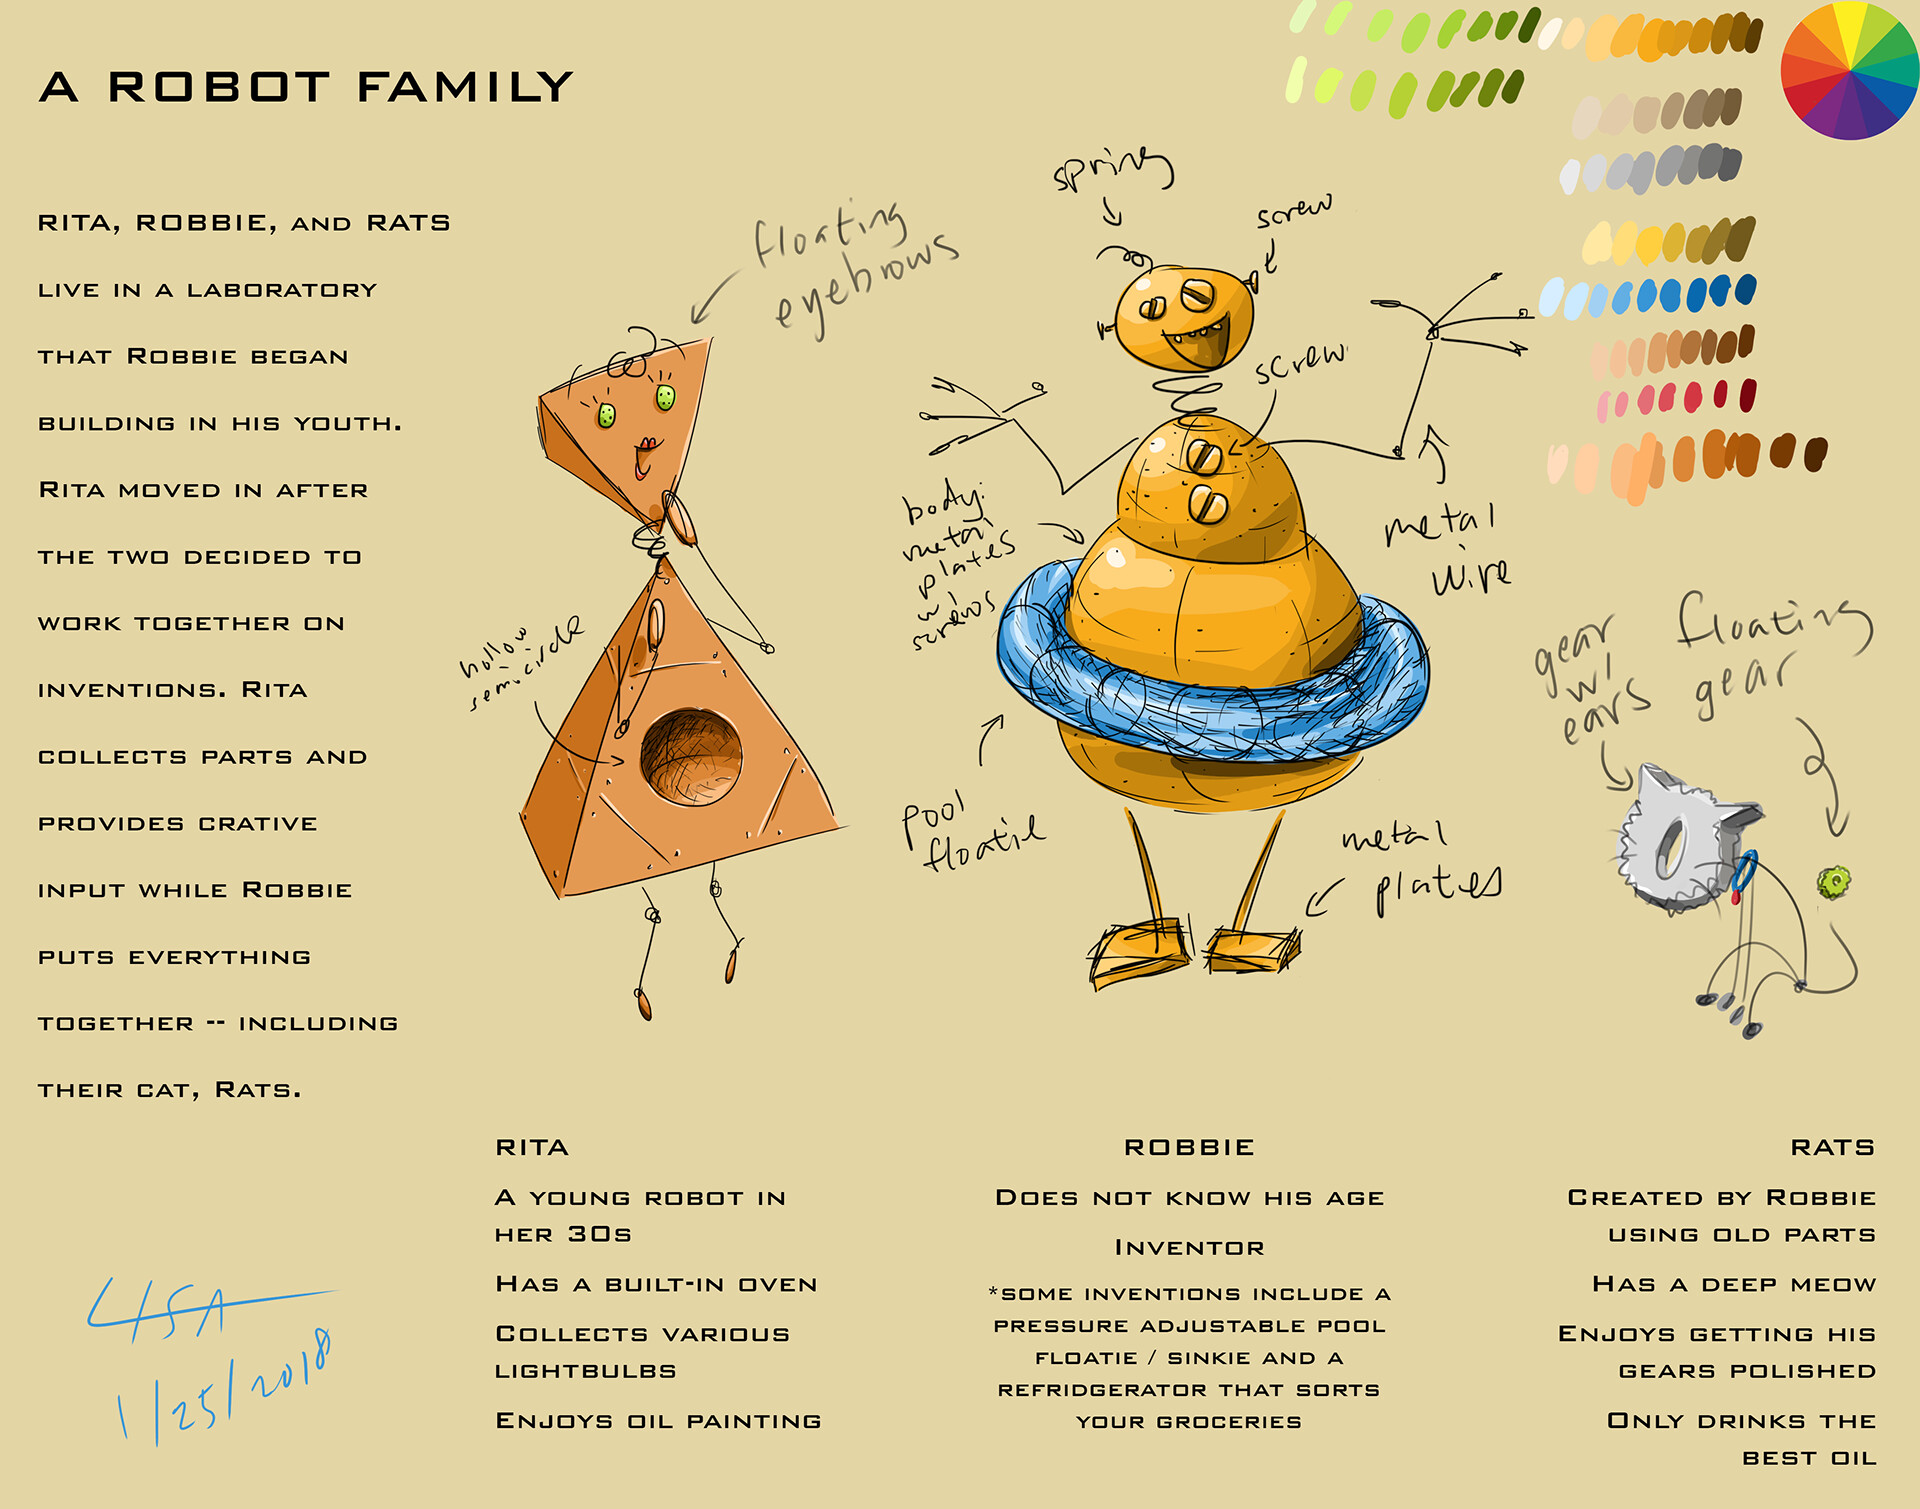 A ROBOT FAMILY
RITA, ROBBIE, AND RATS
LIVE IN A LABORATORY
THAT ROBBIE BEGAN
BUILDING IN HIS YOUTH.
RITA MOVED IN AFTER
THE TWO DECIDED TO
WORK TOGETHER ON
INVENTIONS. RITA
COLLECTS PARTS AND
PROVIDES CRATIVE
INPUT WHILE ROBBIE
PUTS EVERYTHING
TOGETHER -- INCLUDING
THEIR CAT, RATS.
floating
eyebrows
hollow
semicircle
spring
screw
screw
body:
metal
plates
w/
screws
metal
wire
pool
floatie
metal
plates
gear
w/
ears
floating
gear
RITA
A YOUNG ROBOT IN
HER 30S
HAS A BUILT-IN OVEN
COLLECTS VARIOUS
LIGHTBULBS
ENJOYS OIL PAINTING
ROBBIE
DOES NOT KNOW HIS AGE
INVENTOR
*SOME INVENTIONS INCLUDE A
PRESSURE ADJUSTABLE POOL
FLOATIE / SINKIE AND A
REFRIDGERATOR THAT SORTS
YOUR GROCERIES
RATS
CREATED BY ROBBIE
USING OLD PARTS
HAS A DEEP MEOW
ENJOYS GETTING HIS
GEARS POLISHED
ONLY DRINKS THE
BEST OIL
LISA
1/25/2018